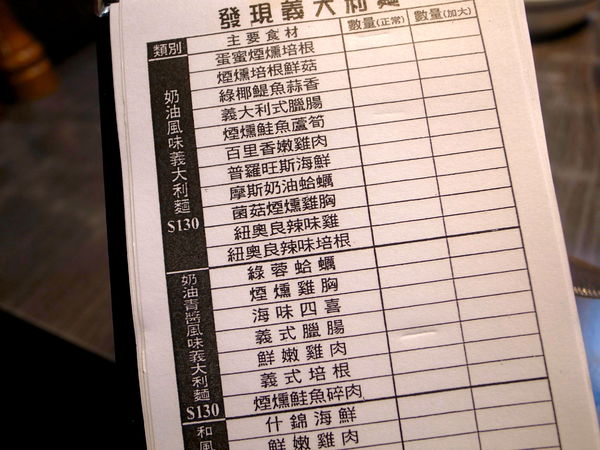 發現義大利麵
類別 主要食材 數量(正常) 數量(加大)
奶油風味義大利麵 $130
蛋蜜煙燻培根
煙燻培根鮮菇
綠椰鯷魚蒜香
義大利式臘腸
煙燻鮭魚蘆筍
百里香嫩雞肉
普羅旺斯海鮮
摩斯奶油蛤蠣
菌菇煙燻雞胸
紐奧良辣味雞
紐奧良辣味培根
奶油青醬風味義大利麵 $130
綠蓉蛤蠣
煙燻雞胸
海味四喜
義式臘腸
鮮嫩雞肉
義式培根
煙燻鮭魚碎肉
和風
什錦海鮮
鮮嫩雞肉